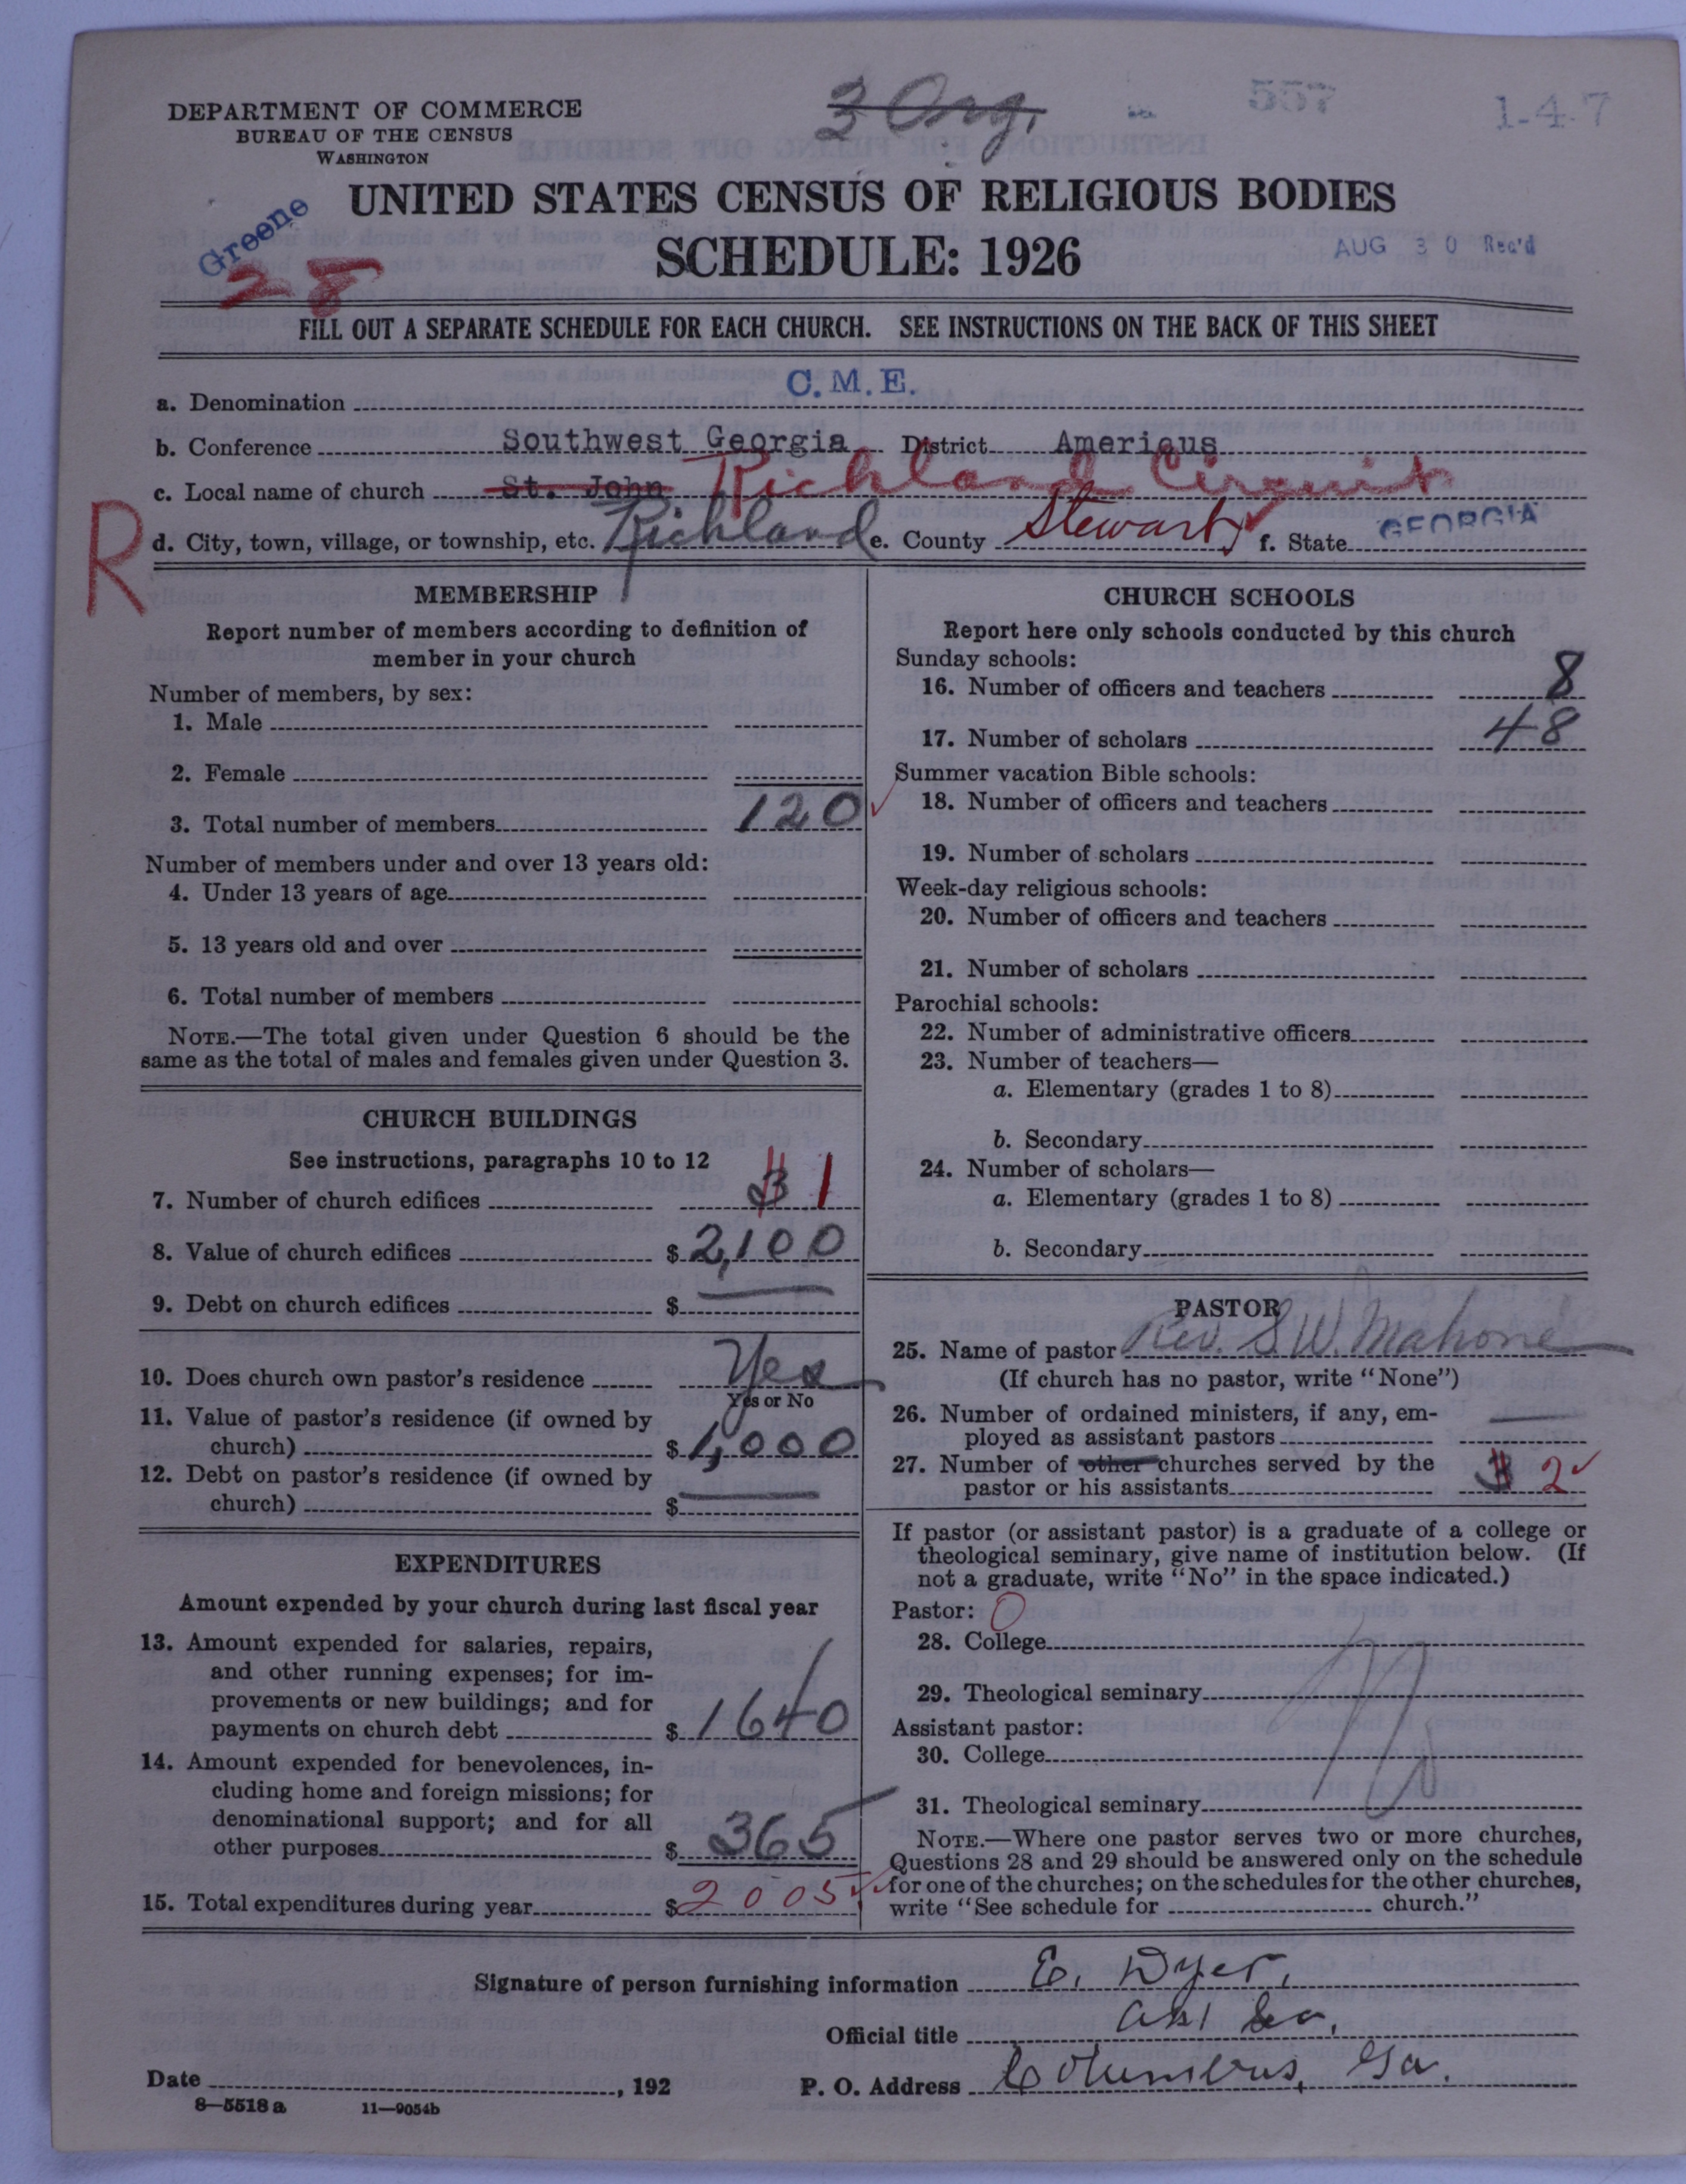 3 Org.
557
1-4-7
DEPARTMENT OF COMMERCE
BUREAU OF THE CENSUS
WASHINGTON
UNITED STATES CENSUS OF RELIGIOUS BODIES
SCHEDULE: 1926
Greene
28
AUG 30 Rec'd
FILL OUT A SEPARATE SCHEDULE FOR EACH CHURCH. SEE INSTRUCTIONS ON THE BACK OF THIS SHEET
a. Denomination C.M.E.
b. Conference Southwest Georgia District Americus
c. Local name of church St. John Richland Circuit
R
d. City, town, village, or township, etc. Richland e. County Stewart f. State GEORGIA
MEMBERSHIP
Report number of members according to definition of
member in your church
Number of members, by sex:
1. Male
2. Female
3. Total number of members 120
Number of members under and over 13 years old:
4. Under 13 years of age
5. 13 years old and over
6. Total number of members
NOTE.—The total given under Question 6 should be the
same as the total of males and females given under Question 3.
CHURCH BUILDINGS
See instructions, paragraphs 10 to 12
7. Number of church edifices 1
8. Value of church edifices $ 2,100
9. Debt on church edifices $
10. Does church own pastor's residence Yes
Yes or No
11. Value of pastor's residence (if owned by
church) $ 1,000
12. Debt on pastor's residence (if owned by
church) $
EXPENDITURES
Amount expended by your church during last fiscal year
13. Amount expended for salaries, repairs,
and other running expenses; for im-
provements or new buildings; and for
payments on church debt $ 1640
14. Amount expended for benevolences, in-
cluding home and foreign missions; for
denominational support; and for all
other purposes $ 365
15. Total expenditures during year $ 2005
CHURCH SCHOOLS
Report here only schools conducted by this church
Sunday schools:
16. Number of officers and teachers 8
17. Number of scholars 48
Summer vacation Bible schools:
18. Number of officers and teachers
19. Number of scholars
Week-day religious schools:
20. Number of officers and teachers
21. Number of scholars
Parochial schools:
22. Number of administrative officers
23. Number of teachers—
a. Elementary (grades 1 to 8)
b. Secondary
24. Number of scholars—
a. Elementary (grades 1 to 8)
b. Secondary
PASTOR
25. Name of pastor Rev. S. W. Mahone
(If church has no pastor, write "None")
26. Number of ordained ministers, if any, em-
ployed as assistant pastors
27. Number of other churches served by the
pastor or his assistants 2
If pastor (or assistant pastor) is a graduate of a college or
theological seminary, give name of institution below. (If
not a graduate, write "No" in the space indicated.)
Pastor: 0
28. College
29. Theological seminary
Assistant pastor:
30. College
31. Theological seminary
NOTE.—Where one pastor serves two or more churches,
Questions 28 and 29 should be answered only on the schedule
for one of the churches; on the schedules for the other churches,
write "See schedule for church."
Signature of person furnishing information E. Dyer.
Official title
Date , 192 P. O. Address Columbus, Ga.
8—5518a 11—9054b